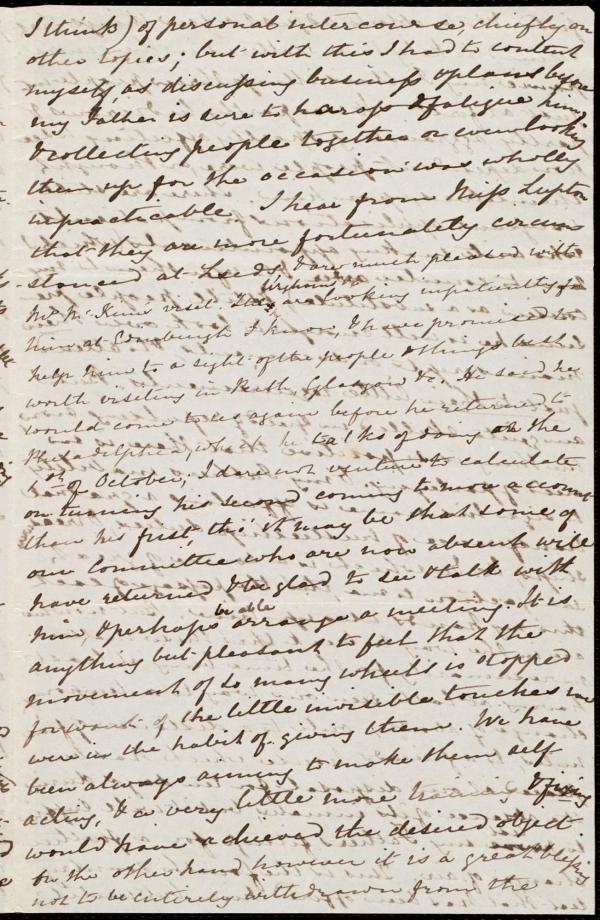 I think) of personal intercourse, chiefly on
other topics; but with this I had to content
myself, as discussing business & plans before
my Father is sure to harass & fatigue him,
& collecting people together or even looking
them up for the occasion was wholly
impracticable. I hear from Miss Lupton
that they are more fortunately circum
-stanced at Leeds, & are much pleased with
Mr. McKim's visit. The Wighams are looking impatiently for
him at Edinburgh I know, & I have promised to
help him to a sight of the people & things best
worth visiting in Perth Glasgow &c. He said he
would come to us again before he returned to
Philadelphia, which he talks of doing on the
of October; I dare not venture to calculate
on turning his second coming to more account
than his first, tho' it may be that some of
our Committee who are now absent will
have returned & be glad to see & talk with
him, & perhaps be able arrange a meeting. It is
anything but pleasant to feel that the
movement of so many wheels is stopped
for want of the little invisible touches we
were in the habit of giving them. We have
been always aiming to make them self
acting, & a very little more training & fixing
would have achieved the desired object.
On the other hand however it is a great blessing
not to be entirely withdrawn from the